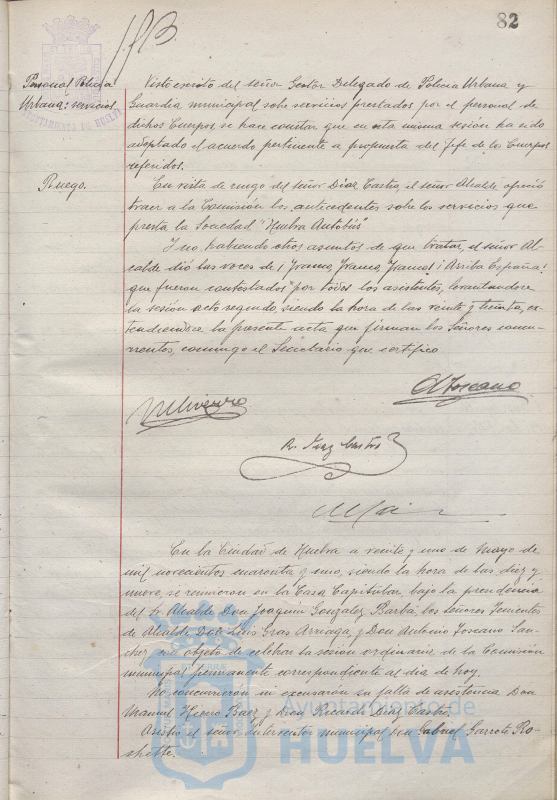 82
Personal Policía
Urbana: servicios.
AYUNTAMIENTO DE HUELVA
Visto escrito del señor Gestor Delegado de Policía Urbana y
Guardia municipal sobre servicios prestados por el personal de
dichos Cuerpos, se hace constar que en esta misma sesión ha sido
adoptado el acuerdo pertinente a propuesta del Jefe de los Cuerpos
referidos.
Ruego.
En vista de ruego del señor Díaz Castro, el señor Alcalde ofreció
traer a la Comisión los antecedentes sobre los servicios que
presta la Sociedad "Huelva Autobús"
Y no habiendo otros asuntos de que tratar, el señor Al-
calde dió las voces de ¡Franco, Franco, Franco! ¡Arriba España!
que fueron contestados por todos los asistentes, levantándose
la sesión acto seguido, siendo la hora de las veinte y treinta, ex-
tendiéndose la presente acta que firman los Señores concu-
rrentes, conmigo el Secretario que certifico
A Toscano
R. Diaz Castro
En la Ciudad de Huelva a veinte y uno de Mayo de
mil novecientos cuarenta y uno, siendo la hora de las diez y
nueve, se reunieron en la Casa Capitular, bajo la presidencia
del Sr. Alcalde Don Joaquín González Barba los Señores Tenientes
de Alcalde Don Luis Gras Arriaga, y Don Antonio Toscano San-
chez con objeto de celebrar la sesión ordinaria de la Comisión
municipal permanente correspondiente al día de hoy.
No concurrieron ni excusaron su falta de asistencia Don
Manuel Hierro Baez y Don Ricardo Díaz Castro.
Asistió el señor Interventor municipal Don Gabriel Garrote Ro-
Ayuntamiento de
HUELVA